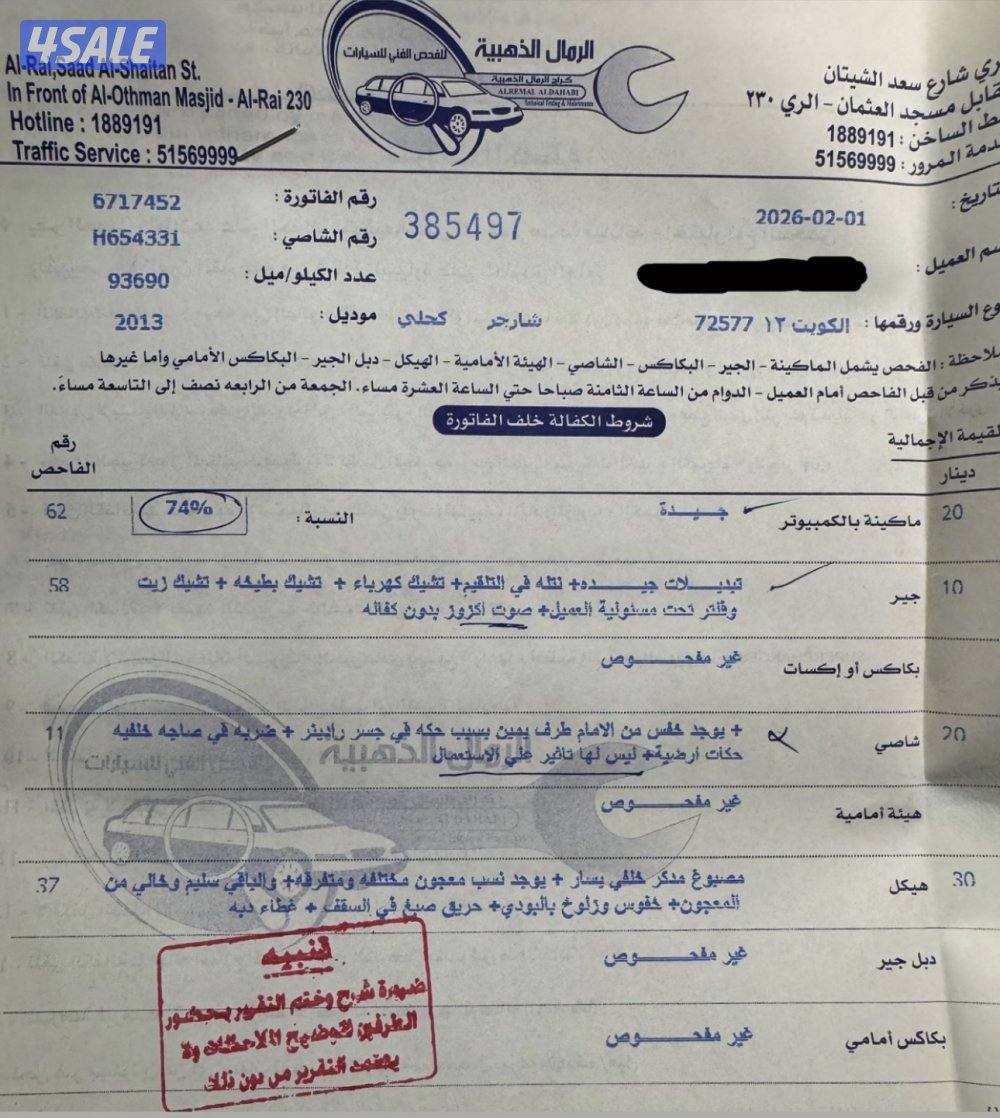 4SALE
Al-Rai,Saad Al-Shaitan St.
In Front of Al-Othman Masjid - Al-Rai 230
Hotline : 1889191
Traffic Service : 51569999
الرمال الذهبية
للفحص الفني للسيارات
كراج الرمال الذهبية
ALREMAL ALDAHABI
Technical Testing & Maintenance
ري شارع سعد الشيتان
قابل مسجد العثمان - الري ٢٣٠
ط الساخن : 1889191
دمة المرور : 51569999
تاريخ : 2026-02-01
385497
رقم الفاتورة : 6717452
رقم الشاصي : H654331
سم العميل :
عدد الكيلو/ميل : 93690
وع السيارة ورقمها : الكويت ١٢ 72577 شارجر كحلي
موديل : 2013
لاحظة : الفحص يشمل الماكينة - الجير - البكاكس - الشاصي - الهيئة الأمامية - الهيكل - دبل الجير - البكاكس الأمامي وأما غيرها
يذكر من قبل الفاحص أمام العميل - الدوام من الساعة الثامنة صباحا حتي الساعة العشرة مساء. الجمعة من الرابعه نصف إلى التاسعة مساءً.
شروط الكفالة خلف الفاتورة
لقيمة الإجمالية
دينار
رقم
الفاحص
20 ماكينة بالكمبيوتر جيـــدة النسبة : 74% 62
10 جير تبديـــلات جيـــده+ نتله في التلقيم+ تشيك كهرباء + تشيك بطيخه + تشيك زيت 58
وفلتر تحت مسئولية العميل+ صوت اكزوز بدون كفاله
بكاكس أو إكسات غير مفحـــــوص
20 شاصي + يوجد خفس من الامام طرف يمين بسبب حكه في جسر راديتر + ضربه في صاجه خلفيه 11
حكات ارضية+ ليس لها تاثير علي الاستعمال
هيئة أمامية غير مفحـــــوص
30 هيكل مصبوغ مدكر خلفي يسار + يوجد نسب معجون مختلفه ومتفرقه+ والباقي سليم وخالي من 37
المعجون+ خفوس وزلوخ بالبودي+ حريق صبغ في السقف + غطاء دبه
دبل جير غير مفحـــــوص
بكاكس أمامي غير مفحـــــوص
تنبيه
ضرورة شرح وختم التقرير بحضور
الطرفين لتوضيح الملاحظات ولا
يعتمد التقرير من دون ذلك